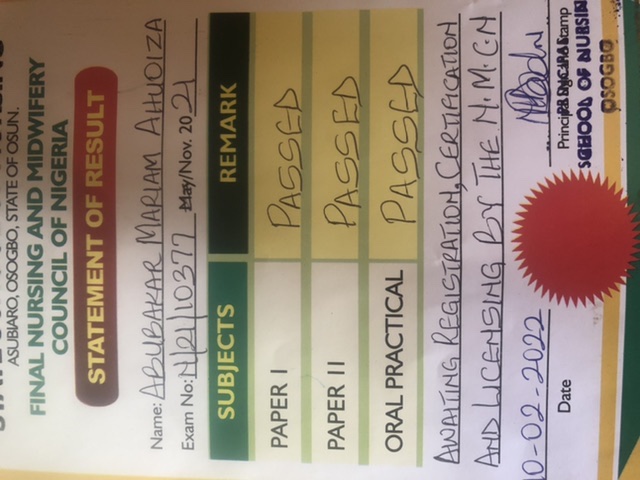 ASUBIARO, OSOGBO, STATE OF OSUN.
FINAL NURSING AND MIDWIFERY
COUNCIL OF NIGERIA
STATEMENT OF RESULT
Name: ABUBAKAR MARIAM AHUOIZA
Exam No: N/21/10377 May/Nov. 2021
SUBJECTS REMARK
PAPER I PASSED
PAPER II PASSED
ORAL PRACTICAL PASSED
AWAITING REGISTRATION, CERTIFICATION
AND LICENSING BY THE N.M.C.N
10-02-2022
Date
PRINCIPAL
SCHOOL OF NURSIN
OSOGBO